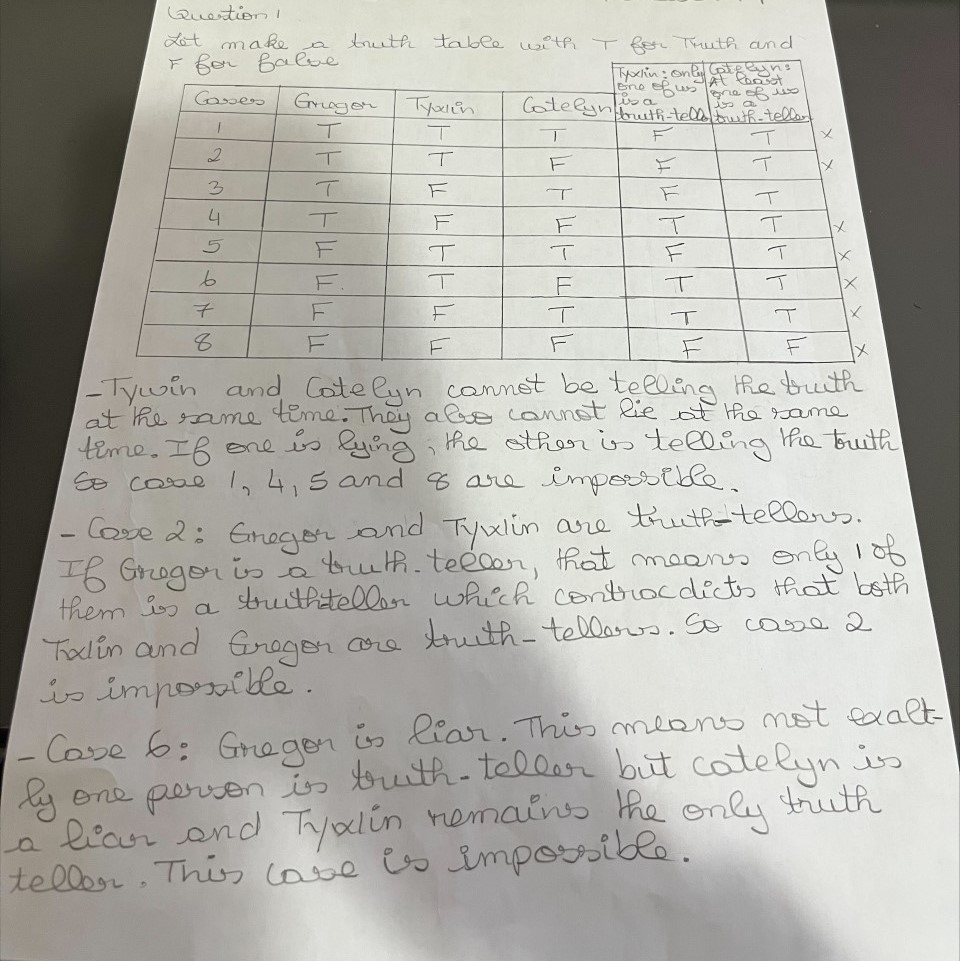 Question 1
Let make a truth table with T for Truth and
F for false
Cases Gregor Tyxlin Catelyn Tyxlin: only one of us is a truth-teller Catelyn: At least one of us is a truth-teller
1 T T T F T x
2 T T F F T x
3 T F T F T
4 T F F T T x
5 F T T F T x
6 F T F T T x
7 F F T T T x
8 F F F F F x
- Tywin and Catelyn cannot be telling the truth
at the same time. They also cannot lie at the same
time. If one is lying, the other is telling the truth
So case 1, 4, 5 and 8 are impossible.
- Case 2: Gregor and Tyxlin are truth-tellers.
If Gregor is a truth-teller, that means only 1 of
them is a truthteller which contracdicts that both
Txlin and Gregor are truth-tellers. So case 2
is impossible.
- Case 6: Gregor is liar. This means not exalt-
ly one person is truth-teller but catelyn is
a liar and Tyxlin remains the only truth
teller. This case is impossible.